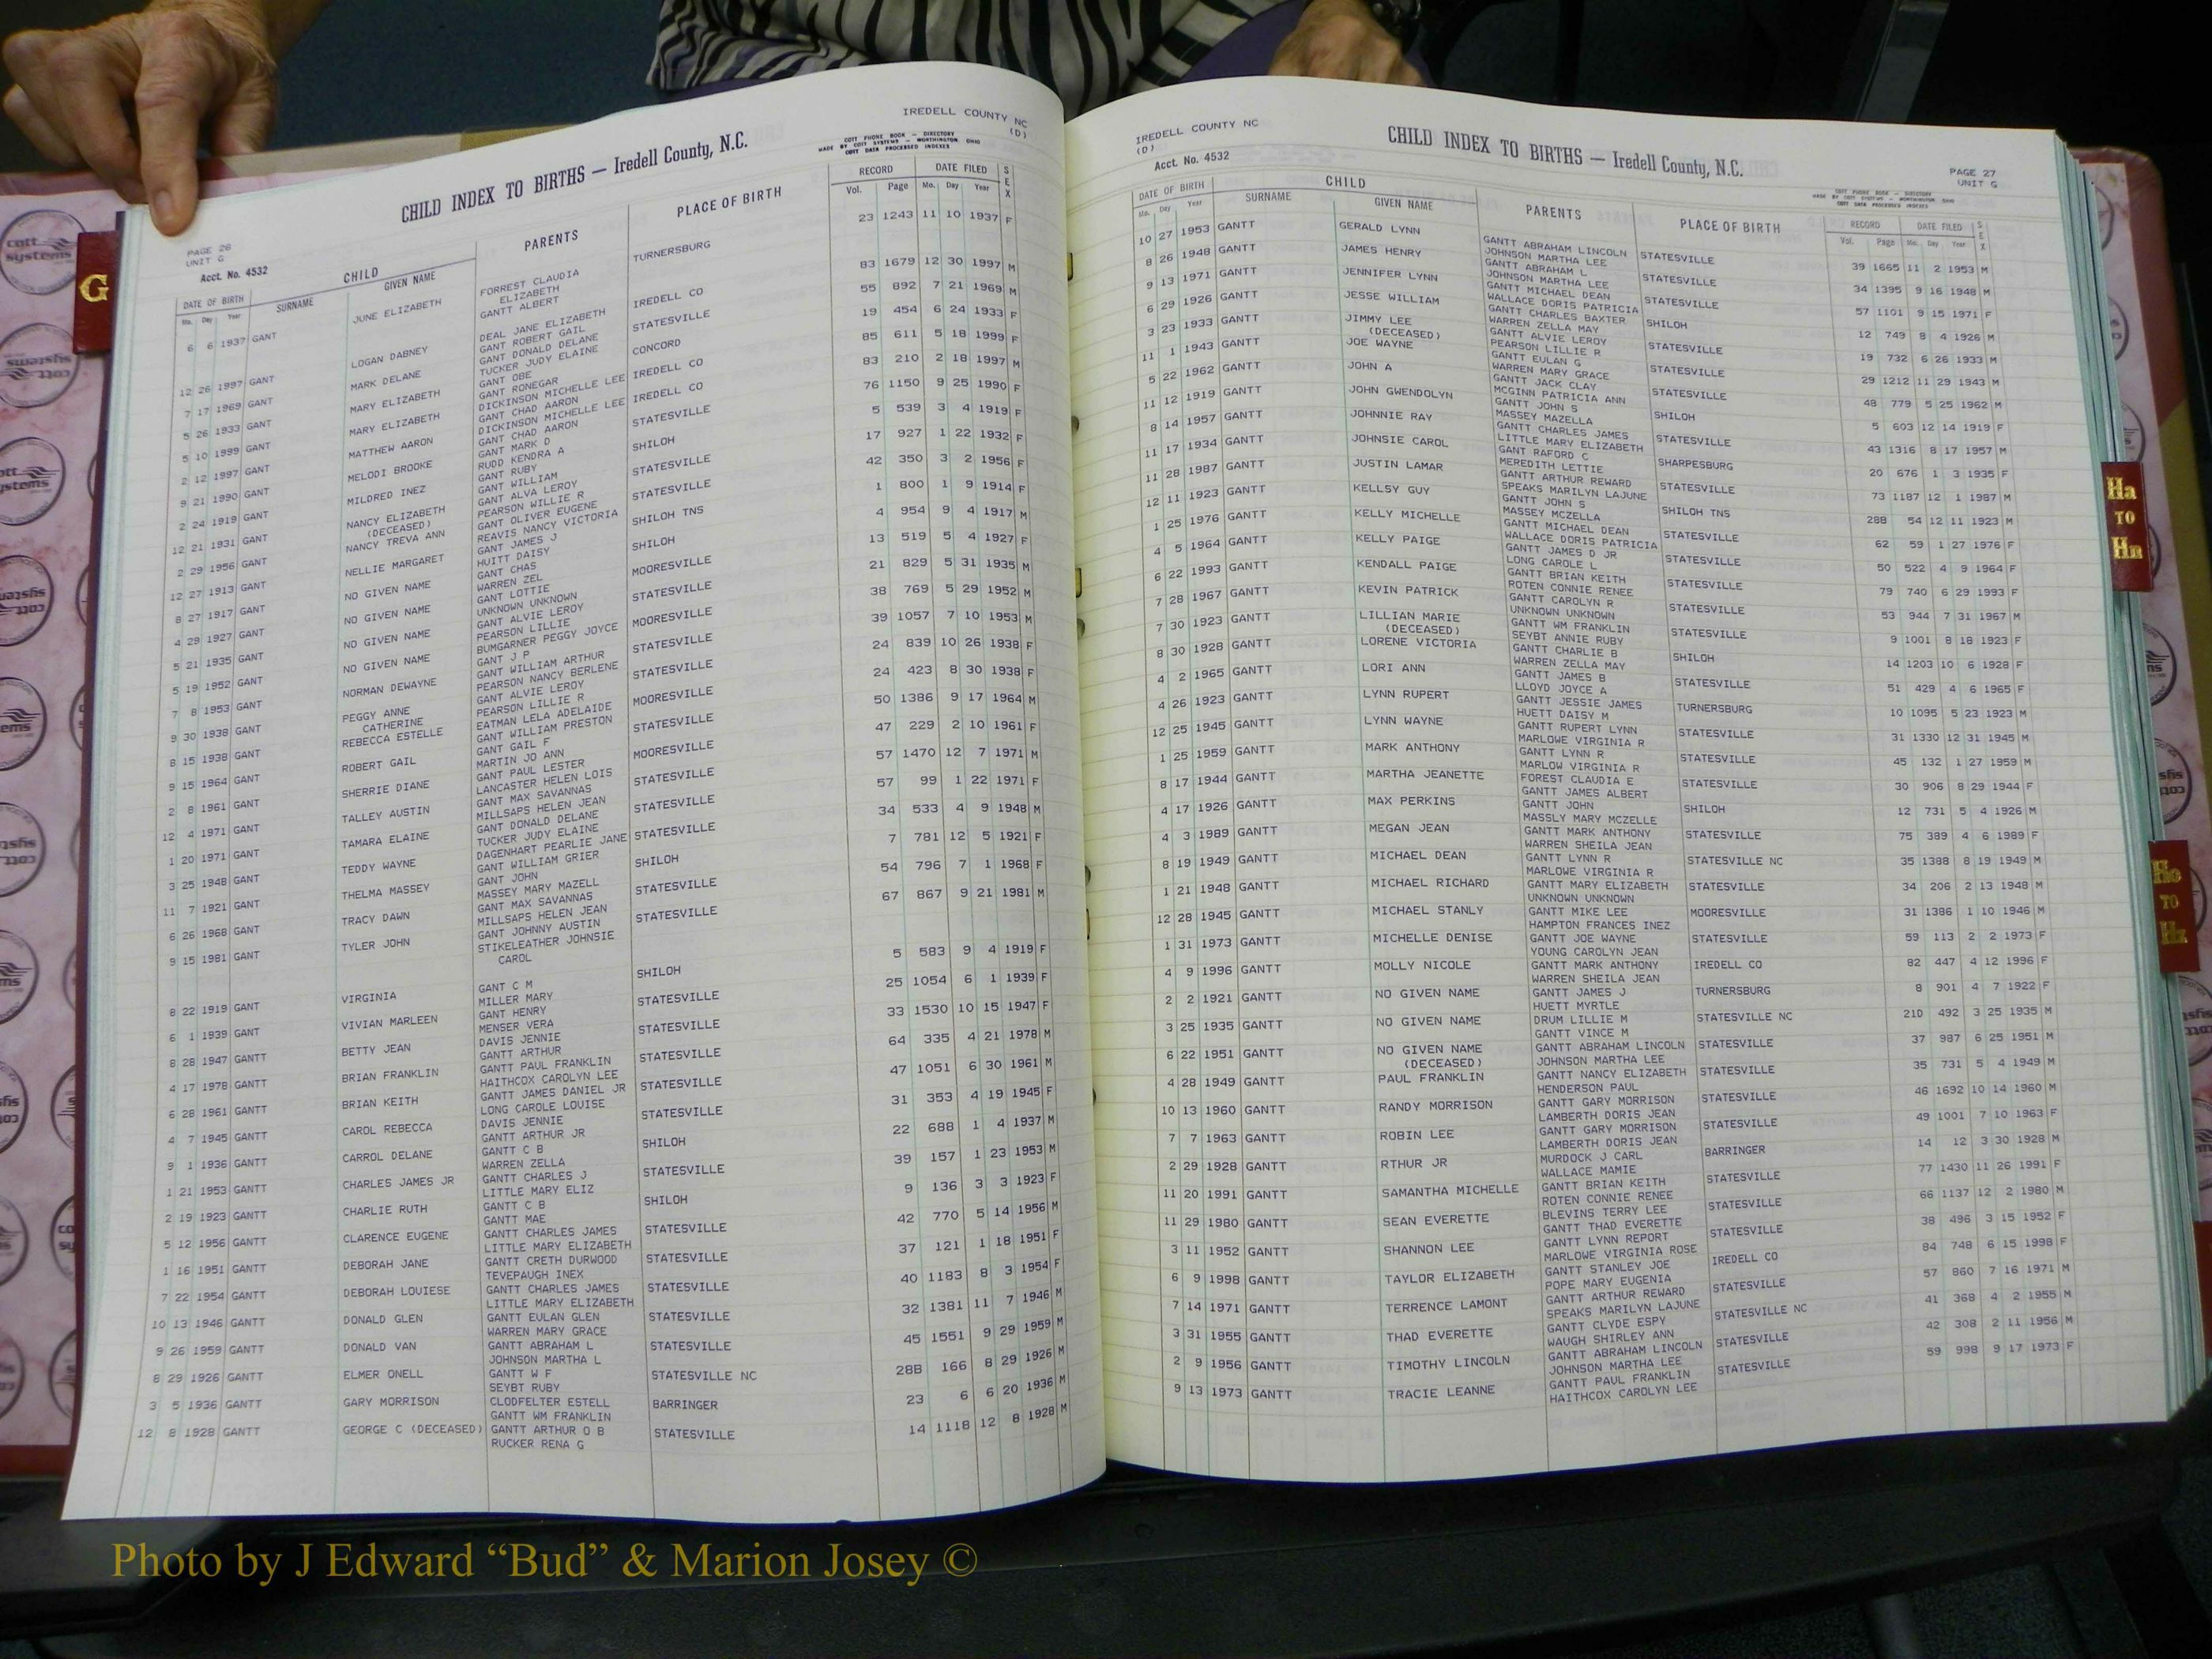 IREDELL COUNTY NC
(D)
CHILD INDEX TO BIRTHS — Iredell County, N.C.
COTT PHONE BOOK — DIRECTORY
MADE BY COTT SYSTEMS — WORTHINGTON, OHIO
COTT DATA PROCESSED INDEXES
PAGE 26
UNIT G
Acct. No. 4532
DATE OF BIRTH CHILD PARENTS PLACE OF BIRTH RECORD DATE FILED SEX
Mo. Day Year SURNAME GIVEN NAME Vol. Page Mo. Day Year
6 6 1937 GANT JUNE ELIZABETH FORREST CLAUDIA TURNERSBURG 23 1243 11 10 1937 F
ELIZABETH
GANTT ALBERT
12 26 1997 GANT LOGAN DABNEY DEAL JANE ELIZABETH IREDELL CO 83 1679 12 30 1997 M
GANT ROBERT GAIL
7 17 1969 GANT MARK DELANE GANT DONALD DELANE STATESVILLE 55 892 7 21 1969 M
TUCKER JUDY ELAINE
5 26 1933 GANT MARY ELIZABETH GANT OBE CONCORD 19 454 6 24 1933 F
GANT RONEGAR
5 10 1999 GANT MARY ELIZABETH DICKINSON MICHELLE LEE IREDELL CO 85 611 5 18 1999 F
GANT CHAD AARON
2 12 1997 GANT MATTHEW AARON DICKINSON MICHELLE LEE IREDELL CO 83 210 2 18 1997 M
GANT CHAD AARON
9 21 1990 GANT MELODI BROOKE GANT MARK D STATESVILLE 76 1150 9 25 1990 F
RUDD KENDRA A
2 24 1919 GANT MILDRED INEZ GANT RUBY SHILOH 5 539 3 4 1919 F
GANT WILLIAM
12 21 1931 GANT NANCY ELIZABETH GANT ALVA LEROY STATESVILLE 17 927 1 22 1932 F
(DECEASED) PEARSON WILLIE R
2 29 1956 GANT NANCY TREVA ANN GANT OLIVER EUGENE STATESVILLE 42 350 3 2 1956 F
REAVIS NANCY VICTORIA
12 27 1913 GANT NELLIE MARGARET GANT JAMES J SHILOH TNS 1 800 1 9 1914 F
HUITT DAISY
8 27 1917 GANT NO GIVEN NAME GANT CHAS SHILOH 4 954 9 4 1917 M
WARREN ZEL
4 29 1927 GANT NO GIVEN NAME GANT LOTTIE MOORESVILLE 13 519 5 4 1927 F
UNKNOWN UNKNOWN
5 21 1935 GANT NO GIVEN NAME GANT ALVIE LEROY STATESVILLE 21 829 5 31 1935 M
PEARSON LILLIE
5 19 1952 GANT NO GIVEN NAME BUMGARNER PEGGY JOYCE MOORESVILLE 38 769 5 29 1952 M
GANT J P
7 8 1953 GANT NORMAN DEWAYNE GANT WILLIAM ARTHUR STATESVILLE 39 1057 7 10 1953 M
PEARSON NANCY BERLENE
9 30 1938 GANT PEGGY ANNE GANT ALVIE LEROY STATESVILLE 24 839 10 26 1938 F
CATHERINE PEARSON LILLIE R
8 15 1938 GANT REBECCA ESTELLE EATMAN LELA ADELAIDE MOORESVILLE 24 423 8 30 1938 F
GANT WILLIAM PRESTON
9 15 1964 GANT ROBERT GAIL GANT GAIL F STATESVILLE 50 1386 9 17 1964 M
MARTIN JO ANN
2 8 1961 GANT SHERRIE DIANE GANT PAUL LESTER MOORESVILLE 47 229 2 10 1961 F
LANCASTER HELEN LOIS
12 4 1971 GANT TALLEY AUSTIN GANT MAX SAVANNAS STATESVILLE 57 1470 12 7 1971 M
MILLSAPS HELEN JEAN
1 20 1971 GANT TAMARA ELAINE GANT DONALD DELANE STATESVILLE 57 99 1 22 1971 F
TUCKER JUDY ELAINE
3 25 1948 GANT TEDDY WAYNE DAGENHART PEARLIE JANE STATESVILLE 34 533 4 9 1948 M
GANT WILLIAM GRIER
11 7 1921 GANT THELMA MASSEY GANT JOHN SHILOH 7 781 12 5 1921 F
MASSEY MARY MAZELL
6 26 1968 GANT TRACY DAWN GANT MAX SAVANNAS STATESVILLE 54 796 7 1 1968 F
MILLSAPS HELEN JEAN
9 15 1981 GANT TYLER JOHN GANT JOHNNY AUSTIN STATESVILLE 67 867 9 21 1981 M
STIKELEATHER JOHNSIE
CAROL
8 22 1919 GANT VIRGINIA GANT C M SHILOH 5 583 9 4 1919 F
MILLER MARY
6 1 1939 GANT VIVIAN MARLEEN GANT HENRY STATESVILLE 25 1054 6 1 1939 F
MENSER VERA
8 28 1947 GANTT BETTY JEAN DAVIS JENNIE STATESVILLE 33 1530 10 15 1947 F
GANTT ARTHUR
4 17 1978 GANTT BRIAN FRANKLIN GANTT PAUL FRANKLIN STATESVILLE 64 335 4 21 1978 M
HAITHCOX CAROLYN LEE
6 28 1961 GANTT BRIAN KEITH GANTT JAMES DANIEL JR STATESVILLE 47 1051 6 30 1961 M
LONG CAROLE LOUISE
4 7 1945 GANTT CAROL REBECCA DAVIS JENNIE STATESVILLE 31 353 4 19 1945 F
GANTT ARTHUR JR
9 1 1936 GANTT CARROL DELANE GANTT C B SHILOH 22 688 1 4 1937 M
WARREN ZELLA
1 21 1953 GANTT CHARLES JAMES JR GANTT CHARLES J STATESVILLE 39 157 1 23 1953 M
LITTLE MARY ELIZ
2 19 1923 GANTT CHARLIE RUTH GANTT C B SHILOH 9 136 3 3 1923 F
GANTT MAE
5 12 1956 GANTT CLARENCE EUGENE GANTT CHARLES JAMES STATESVILLE 42 770 5 14 1956 M
LITTLE MARY ELIZABETH
1 16 1951 GANTT DEBORAH JANE GANTT CRETH DURWOOD STATESVILLE 37 121 1 18 1951 F
TEVEPAUGH INEX
7 22 1954 GANTT DEBORAH LOUIESE GANTT CHARLES JAMES STATESVILLE 40 1183 8 3 1954 F
LITTLE MARY ELIZABETH
10 13 1946 GANTT DONALD GLEN GANTT EULAN GLEN STATESVILLE 32 1381 11 7 1946 M
WARREN MARY GRACE
9 26 1959 GANTT DONALD VAN GANTT ABRAHAM L STATESVILLE 45 1551 9 29 1959 M
JOHNSON MARTHA L
8 29 1926 GANTT ELMER ONELL GANTT W F STATESVILLE NC 28B 166 8 29 1926 M
SEYBT RUBY
3 5 1936 GANTT GARY MORRISON CLODFELTER ESTELL BARRINGER 23 6 6 20 1936 M
GANTT WM FRANKLIN
12 8 1928 GANTT GEORGE C (DECEASED) GANTT ARTHUR O B STATESVILLE 14 1118 12 8 1928 M
RUCKER RENA G
IREDELL COUNTY NC
(D)
CHILD INDEX TO BIRTHS — Iredell County, N.C.
Acct. No. 4532
PAGE 27
UNIT G
COTT PHONE BOOK — DIRECTORY
MADE BY COTT SYSTEMS — WORTHINGTON, OHIO
COTT DATA PROCESSED INDEXES
DATE OF BIRTH CHILD PARENTS PLACE OF BIRTH RECORD DATE FILED SEX
Mo. Day Year SURNAME GIVEN NAME Vol. Page Mo. Day Year
10 27 1953 GANTT GERALD LYNN GANTT ABRAHAM LINCOLN STATESVILLE 39 1665 11 2 1953 M
JOHNSON MARTHA LEE
8 26 1948 GANTT JAMES HENRY GANTT ABRAHAM L STATESVILLE 34 1395 9 16 1948 M
JOHNSON MARTHA LEE
9 13 1971 GANTT JENNIFER LYNN GANTT MICHAEL DEAN STATESVILLE 57 1101 9 15 1971 F
WALLACE DORIS PATRICIA
6 29 1926 GANTT JESSE WILLIAM GANTT CHARLES BAXTER SHILOH 12 749 8 4 1926 M
WARREN ZELLA MAY
3 23 1933 GANTT JIMMY LEE GANTT ALVIE LEROY STATESVILLE 19 732 6 26 1933 M
(DECEASED) PEARSON LILLIE R
11 1 1943 GANTT JOE WAYNE GANTT EULAN G STATESVILLE 29 1212 11 29 1943 M
WARREN MARY GRACE
5 22 1962 GANTT JOHN A GANTT JACK CLAY STATESVILLE 48 779 5 25 1962 M
MCGINN PATRICIA ANN
11 12 1919 GANTT JOHN GWENDOLYN GANTT JOHN S SHILOH 5 603 12 14 1919 F
MASSEY MAZELLA
8 14 1957 GANTT JOHNNIE RAY GANTT CHARLES JAMES STATESVILLE 43 1316 8 17 1957 M
LITTLE MARY ELIZABETH
11 17 1934 GANTT JOHNSIE CAROL GANT RAFORD C SHARPESBURG 20 676 1 3 1935 F
MEREDITH LETTIE
11 28 1987 GANTT JUSTIN LAMAR GANTT ARTHUR REWARD STATESVILLE 73 1187 12 1 1987 M
SPEAKS MARILYN LAJUNE
12 11 1923 GANTT KELLSY GUY GANTT JOHN S SHILOH TNS 28B 54 12 11 1923 M
MASSEY MCZELLA
1 25 1976 GANTT KELLY MICHELLE GANTT MICHAEL DEAN STATESVILLE 62 59 1 27 1976 F
WALLACE DORIS PATRICIA
4 5 1964 GANTT KELLY PAIGE GANTT JAMES D JR STATESVILLE 50 522 4 9 1964 F
LONG CAROLE L
6 22 1993 GANTT KENDALL PAIGE GANTT BRIAN KEITH STATESVILLE 79 740 6 29 1993 F
ROTEN CONNIE RENEE
7 28 1967 GANTT KEVIN PATRICK GANTT CAROLYN R STATESVILLE 53 944 7 31 1967 M
UNKNOWN UNKNOWN
7 30 1923 GANTT LILLIAN MARIE GANTT WM FRANKLIN STATESVILLE 9 1001 8 18 1923 F
(DECEASED) SEYBT ANNIE RUBY
8 30 1928 GANTT LORENE VICTORIA GANTT CHARLIE B SHILOH 14 1203 10 6 1928 F
WARREN ZELLA MAY
4 2 1965 GANTT LORI ANN GANTT JAMES B STATESVILLE 51 429 4 6 1965 F
LLOYD JOYCE A
4 26 1923 GANTT LYNN RUPERT GANTT JESSIE JAMES TURNERSBURG 10 1095 5 23 1923 M
HUETT DAISY M
12 25 1945 GANTT LYNN WAYNE GANTT RUPERT LYNN STATESVILLE 31 1330 12 31 1945 M
MARLOWE VIRGINIA R
1 25 1959 GANTT MARK ANTHONY GANTT LYNN R STATESVILLE 45 132 1 27 1959 M
MARLOW VIRGINIA R
8 17 1944 GANTT MARTHA JEANETTE FOREST CLAUDIA E STATESVILLE 30 906 8 29 1944 F
GANTT JAMES ALBERT
4 17 1926 GANTT MAX PERKINS GANTT JOHN SHILOH 12 731 5 4 1926 M
MASSLY MARY MCZELLE
4 3 1989 GANTT MEGAN JEAN GANTT MARK ANTHONY STATESVILLE 75 389 4 6 1989 F
WARREN SHEILA JEAN
8 19 1949 GANTT MICHAEL DEAN GANTT LYNN R STATESVILLE NC 35 1388 8 19 1949 M
MARLOWE VIRGINIA R
1 21 1948 GANTT MICHAEL RICHARD GANTT MARY ELIZABETH STATESVILLE 34 206 2 13 1948 M
UNKNOWN UNKNOWN
12 28 1945 GANTT MICHAEL STANLY GANTT MIKE LEE MOORESVILLE 31 1386 1 10 1946 M
HAMPTON FRANCES INEZ
1 31 1973 GANTT MICHELLE DENISE GANTT JOE WAYNE STATESVILLE 59 113 2 2 1973 F
YOUNG CAROLYN JEAN
4 9 1996 GANTT MOLLY NICOLE GANTT MARK ANTHONY IREDELL CO 82 447 4 12 1996 F
WARREN SHEILA JEAN
2 2 1921 GANTT NO GIVEN NAME GANTT JAMES J TURNERSBURG 8 901 4 7 1922 F
HUETT MYRTLE
3 25 1935 GANTT NO GIVEN NAME DRUM LILLIE M STATESVILLE NC 21D 492 3 25 1935 M
GANTT VINCE M
6 22 1951 GANTT NO GIVEN NAME GANTT ABRAHAM LINCOLN STATESVILLE 37 987 6 25 1951 M
(DECEASED) JOHNSON MARTHA LEE
4 28 1949 GANTT PAUL FRANKLIN GANTT NANCY ELIZABETH STATESVILLE 35 731 5 4 1949 M
HENDERSON PAUL
10 13 1960 GANTT RANDY MORRISON GANTT GARY MORRISON STATESVILLE 46 1692 10 14 1960 M
LAMBERTH DORIS JEAN
7 7 1963 GANTT ROBIN LEE GANTT GARY MORRISON STATESVILLE 49 1001 7 10 1963 F
LAMBERTH DORIS JEAN
2 29 1928 GANTT RTHUR JR MURDOCK J CARL BARRINGER 14 12 3 30 1928 M
WALLACE MAMIE
11 20 1991 GANTT SAMANTHA MICHELLE GANTT BRIAN KEITH STATESVILLE 77 1430 11 26 1991 F
ROTEN CONNIE RENEE
11 29 1980 GANTT SEAN EVERETTE BLEVINS TERRY LEE STATESVILLE 66 1137 12 2 1980 M
GANTT THAD EVERETTE
3 11 1952 GANTT SHANNON LEE GANTT LYNN REPORT STATESVILLE 38 496 3 15 1952 F
MARLOWE VIRGINIA ROSE
6 9 1998 GANTT TAYLOR ELIZABETH GANTT STANLEY JOE IREDELL CO 84 748 6 15 1998 F
POPE MARY EUGENIA
7 14 1971 GANTT TERRENCE LAMONT GANTT ARTHUR REWARD STATESVILLE 57 860 7 16 1971 M
SPEAKS MARILYN LAJUNE
3 31 1955 GANTT THAD EVERETTE GANTT CLYDE ESPY STATESVILLE NC 41 368 4 2 1955 M
WAUGH SHIRLEY ANN
2 9 1956 GANTT TIMOTHY LINCOLN GANTT ABRAHAM LINCOLN STATESVILLE 42 308 2 11 1956 M
JOHNSON MARTHA LEE
9 13 1973 GANTT TRACIE LEANNE GANTT PAUL FRANKLIN STATESVILLE 59 998 9 17 1973 F
HAITHCOX CAROLYN LEE
G
Ha
TO
Hn
Ho
TO
Hz
cott
systems
Photo by J Edward “Bud” & Marion Josey ©